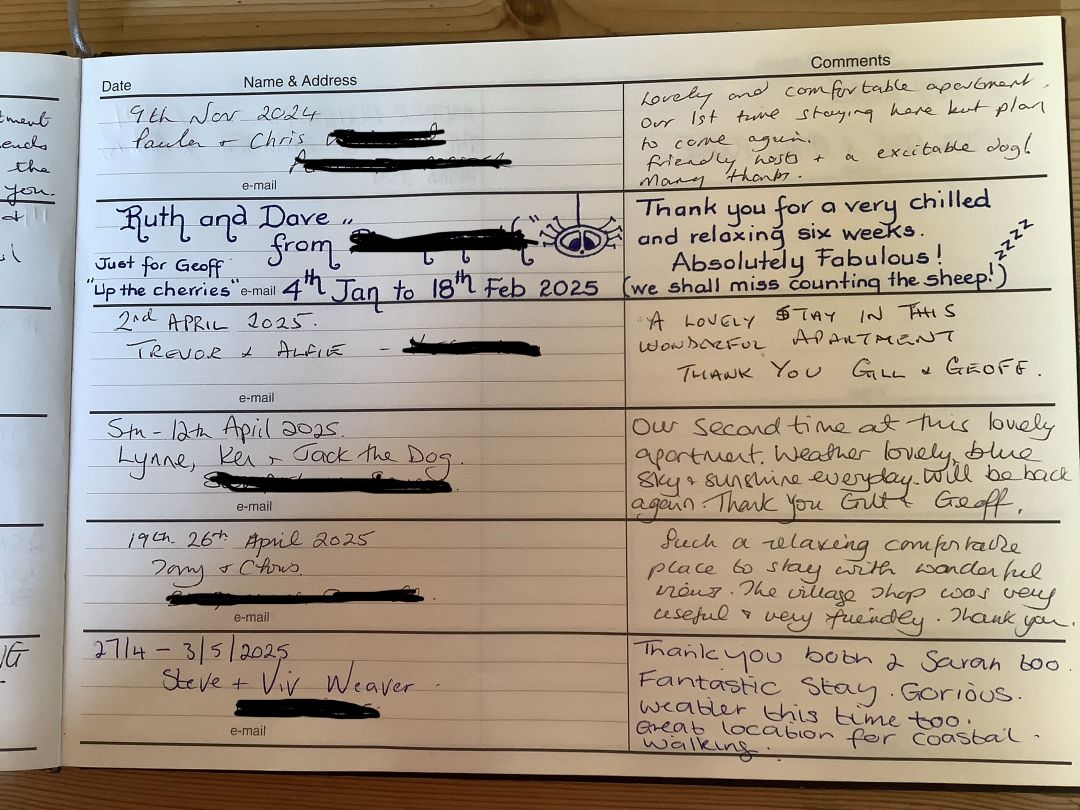 tment
ends
the
you.
Date Name & Address Comments
9th Nov 2024
Paula + Chris
e-mail
Lovely and comfortable apartment.
Our 1st time staying here but plan
to come again.
friendly hosts + a excitable dog!
Many thanks.
Ruth and Dave
from
Just for Geoff
"Up the cherries" e-mail 4th Jan to 18th Feb 2025
Thank you for a very chilled
and relaxing six weeks.
Absolutely Fabulous! zzzz
(we shall miss counting the sheep!)
2nd APRIL 2025.
TREVOR & ALFIE -
e-mail
A LOVELY STAY IN THIS
WONDERFUL APARTMENT
THANK YOU GILL & GEOFF.
5th - 12th April 2025.
Lynne, Ken + Jack the Dog.
e-mail
Our second time at this lovely
apartment. Weather lovely, blue
sky + sunshine everyday. Will be back
again. Thank you Gill + Geoff.
19th 26th April 2025
Tony & Chris.
e-mail
Such a relaxing comfortable
place to stay with wonderful
views. The village shop was very
useful & very friendly. Thank you.
27/4 - 3/5/2025
Steve + Viv Weaver.
e-mail
Thank you both & Sarah too.
Fantastic Stay. Gorious.
weather this time too.
Great location for coastal
walking.